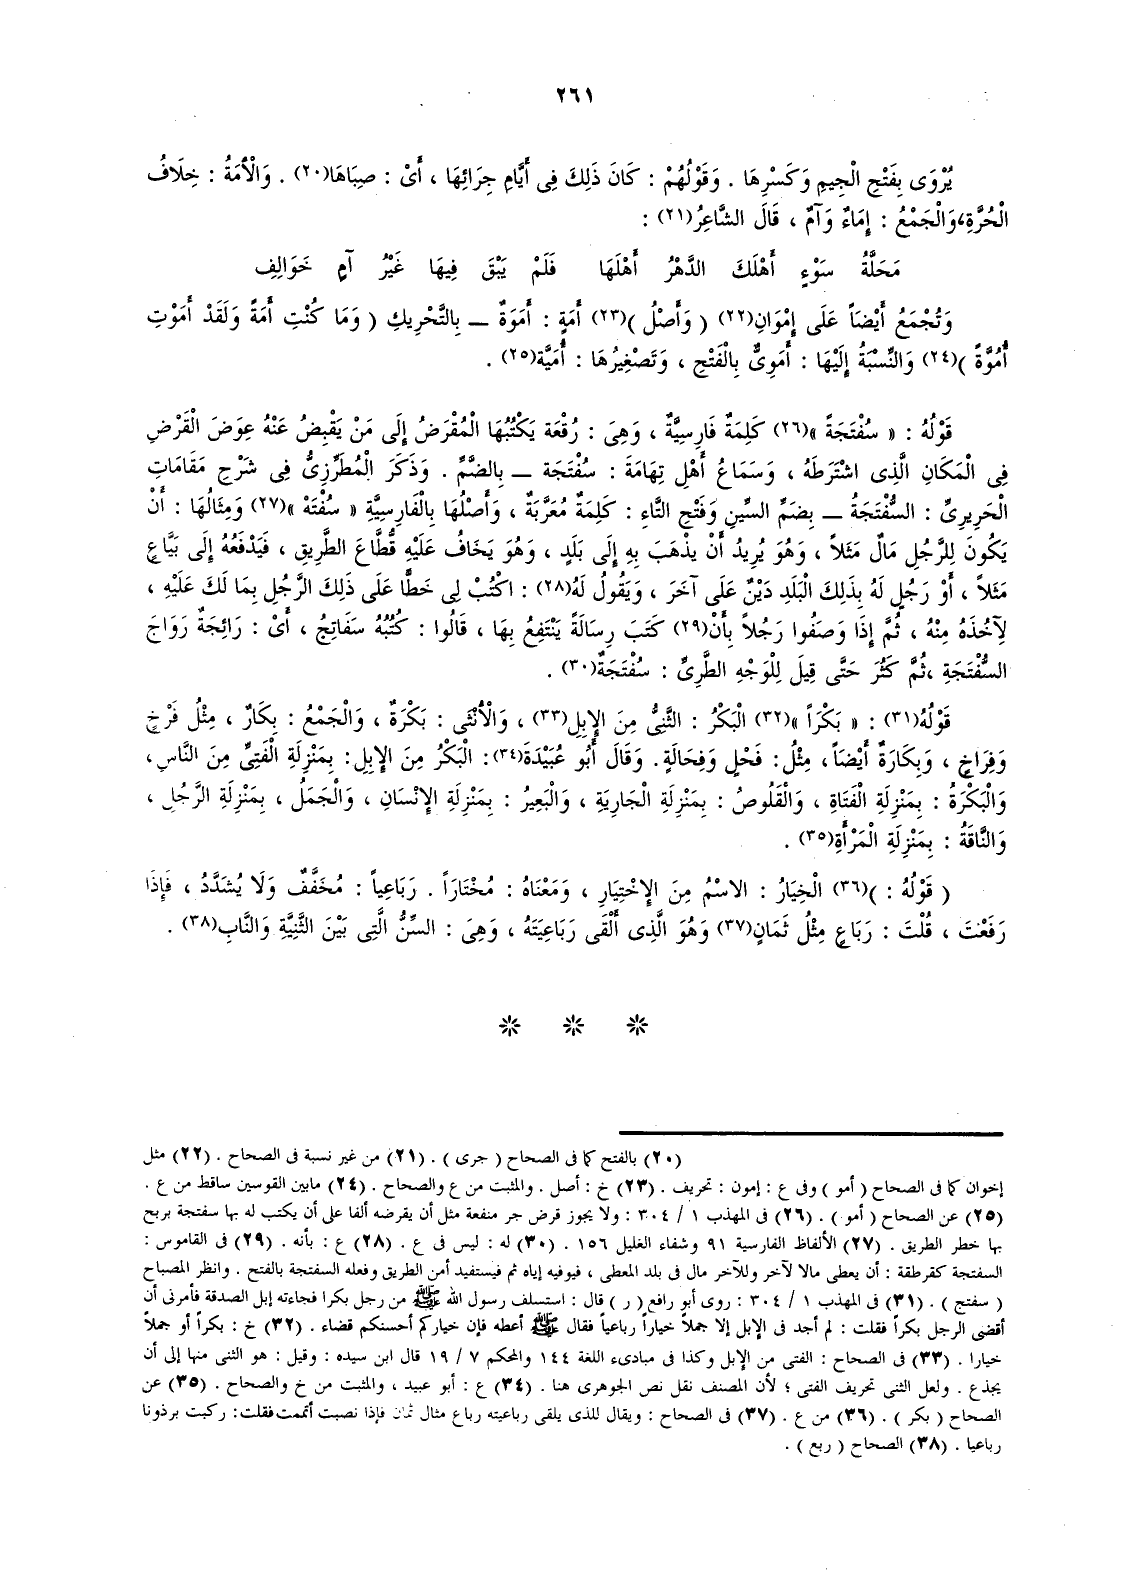 ٢٦١
يُرْوَى بِفَتْحِ الْجِيمِ وَكَسْرِهَا . وَقَوْلُهُمْ : كَانَ ذَلِكَ فِى أَيَّامِ جِرَائِهَا ، أَىْ : صِبَاهَا(٢٠) . وَالْأَمَةُ : خِلَافُ
الْحُرَّةِ،وَالْجَمْعُ : إِمَاءٌ وَآمٌ ، قَالَ الشَّاعِرُ(٢١) :
مَحَلَّةُ سَوْءٍ أَهْلَكَ الدَّهْرُ أَهْلَهَا فَلَمْ يَبْقَ فِيهَا غَيْرُ آمٍ خَوَالِفِ
وَتُجْمَعُ أَيْضَاً عَلَى إِمْوَانٍ(٢٢) ( وَأَصْلُ )(٢٣) أَمَةٍ : أَمَوَةٌ ــ بِالتَّحْرِيكِ ( وَمَا كُنْتِ أَمَةً وَلَقَدْ أَمَوْتِ
أُمُوَّةً )(٢٤) وَالنِّسْبَةُ إِلَيْهَا : أَمَوِىٌّ بِالْفَتْحِ ، وَتَصْغِيرُهَا : أُمَيَّة(٢٥) .
قَوْلُهُ : « سُفْتَجَةً »(٢٦) كَلِمَةٌ فَارِسِيَّةٌ ، وَهِىَ : رُقْعَة يَكْتُبُهَا الْمُقْرَضُ إِلَى مَنْ يَقْبِضُ عَنْهُ عِوَضَ الْقَرْضِ
فِى الْمَكَانِ الَّذِى اشْتَرَطَهُ ، وَسَمَاعُ أَهْلِ تِهَامَةَ : سُفْتَجَة ــ بِالضَّمِّ . وَذَكَرَ الْمُطَرِّزِىُّ فِى شَرْحِ مَقَامَاتِ
الْحَرِيرِىِّ : السُّفْتَجَةُ ــ بِضَمِّ السِّينِ وَفَتْحِ التَّاءِ : كَلِمَةٌ مُعَرَّبَةٌ ، وَأَصْلُهَا بِالْفَارِسِيَّةِ « سُفْتَهْ »(٢٧) وَمِثَالُهَا : أَنْ
يَكُونَ لِلرَّجُلِ مَالٌ مَثَلاً ، وَهُوَ يُرِيدُ أَنْ يَذْهَبَ بِهِ إِلَى بَلَدٍ ، وَهُوَ يَخَافُ عَلَيْهِ قُطَّاعَ الطَّرِيقِ ، فَيَدْفَعُهُ إِلَى بَيَّاعٍ
مَثَلاً ، أَوْ رَجُلٍ لَهُ بِذَلِكَ الْبَلَدِ دَيْنٌ عَلَى آخَرَ ، وَيَقُولُ لَهُ(٢٨) : اكْتُبْ لِى خَطًّا عَلَى ذَلِكَ الرَّجُلِ بِمَا لَكَ عَلَيْهِ ،
لِآخُذَهُ مِنْهُ ، ثُمَّ إِذَا وَصَفُوا رَجُلاً بِأَنْ(٢٩) كَتَبَ رِسَالَةً يَنْتَفِعُ بِهَا ، قَالُوا : كُتُبُهُ سَفَاتِجُ ، أَىْ : رَائِجَةٌ رَوَاجَ
السُّفْتَجَةِ ،ثُمَّ كَثُرَ حَتَّى قِيلَ لِلْوَجْهِ الطَّرِىِّ : سُفْتَجَةٌ(٣٠) .
قَوْلُهُ(٣١) : « بَكْرَاً »(٣٢) الْبَكْرُ : الثَّنِىُّ مِنَ الإِبِلِ(٣٣) ، وَالْأُنْثَى : بَكْرَةٌ ، وَالْجَمْعُ : بِكَارٌ ، مِثْلُ فَرْخٍ
وَفِرَاخٍ ، وَبِكَارَةٌ أَيْضَاً، مِثْلُ: فَحْلٍ وَفِحَالَةٍ. وَقَالَ أَبُو عُبَيْدَةَ(٣٤): الْبَكْرُ مِنَ الإِبِلِ: بِمَنْزِلَةِ الْفَتِىِّ مِنَ النَّاسِ،
وَالْبَكْرَةُ : بِمَنْزِلَةِ الْفَتَاةِ ، وَالْقَلُوصُ : بِمَنْزِلَةِ الْجَارِيَةِ ، وَالْبَعِيرُ : بِمَنْزِلَةِ الإِنْسَانِ ، وَالْجَمَلُ ، بِمَنْزِلَةِ الرَّجُلِ ،
وَالنَّاقَةُ : بِمَنْزِلَةِ الْمَرْأَةِ(٣٥) .
( قَوْلُهُ : )(٣٦) الْخِيَارُ : الاسْمُ مِنَ الإِخْتِيَارِ ، وَمَعْنَاهُ : مُخْتَارَاً . رَبَاعِياً : مُخَفَّفٌ وَلَا يُشَدَّدُ ، فَإِذَا
رَفَعْتَ ، قُلْتَ : رَبَاعٍ مِثْلُ ثَمَانٍ(٣٧) وَهُوَ الَّذِى أَلْقَى رَبَاعِيَتَهُ ، وَهِىَ : السِّنُّ الَّتِى بَيْنَ الثَّنِيَّةِ وَالنَّابِ(٣٨) .
(٢٠) بالفتح كما فى الصحاح ( جرى ) . (٢١) من غير نسبة فى الصحاح . (٢٢) مثل
إخوان كما فى الصحاح ( أمو ) وفى ع : إمون : تحريف . (٢٣) خ : أصل . والمثبت من ع والصحاح . (٢٤) مابين القوسين ساقط من ع .
(٢٥) عن الصحاح ( أمو ) . (٢٦) فى المهذب ١ / ٣٠٤ : ولا يجوز قرض جر منفعة مثل أن يقرضه ألفا على أن يكتب له بها سفتجة بربح
بها خطر الطريق . (٢٧) الألفاظ الفارسية ٩١ وشفاء الغليل ١٥٦ . (٣٠) له : ليس فى ع . (٢٨) ع : بأنه . (٢٩) فى القاموس :
السفتجة كقرطقة : أن يعطى مالا لآخر وللآخر مال فى بلد المعطى ، فيوفيه إياه ثم فيستفيد أمن الطريق وفعله السفتجة بالفتح . وانظر المصباح
( سفتج ) . (٣١) فى المهذب ١ / ٣٠٤ : روى أبو رافع ( ر ) قال : استسلف رسول الله ﷺ من رجل بكرا فجاءته إبل الصدقة فأمرنى أن
أقضى الرجل بكراً فقلت : لم أجد فى الإبل إلا جملاً خياراً رباعياً فقال ﷺ أعطه فإن خياركم أحسنكم قضاء . (٣٢) خ : بكراً أو جملاً
خيارا . (٣٣) فى الصحاح : الفتى من الإبل وكذا فى مبادىء اللغة ١٤٤ والمحكم ٧ / ١٩ قال ابن سيده : وقيل : هو الثنى منها إلى أن
يجذع . ولعل الثنى تحريف الفتى ؛ لأن المصنف نقل نص الجوهرى هنا . (٣٤) ع : أبو عبيد ، والمثبت من خ والصحاح . (٣٥) عن
الصحاح ( بكر ) . (٣٦) من ع . (٣٧) فى الصحاح : ويقال للذى يلقى رباعيته رباع مثال ثمان فإذا نصبت أتممت فقلت: ركبت برذونا
رباعيا . (٣٨) الصحاح ( ربع ) .